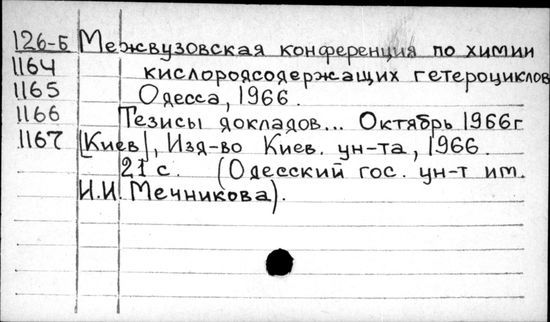 126-Б Межвузовская конференция по химии
1164 кислородсодержащих гетероциклов
1165 Одесса, 1966.
1166 Тезисы докладов... Октябрь 1966г
1167 [Киев], Изд-во Киев. ун-та, 1966.
21 с. (Одесский гос. ун-т им.
И.И. Мечникова).